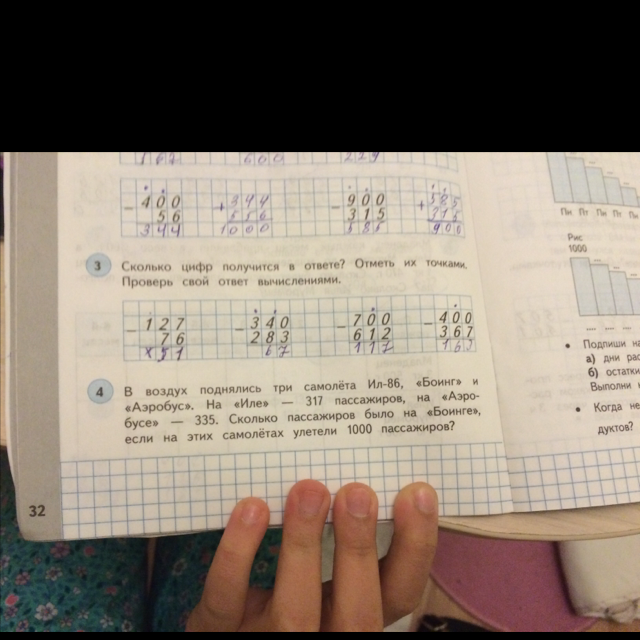 167 600 229
− 400 + 344 − 900 + 585
56 556 315 315
344 1000 585 900
3 Сколько цифр получится в ответе? Отметь их точками.
Проверь свой ответ вычислениями.
− 127 − 340 − 700 − 400
76 283 612 367
51 67 117 167
4 В воздух поднялись три самолёта Ил-86, «Боинг» и
«Аэробус». На «Иле» — 317 пассажиров, на «Аэро-
бусе» — 335. Сколько пассажиров было на «Боинге»,
если на этих самолётах улетели 1000 пассажиров?
32
Пн Пт Пт Пт Пт
Рис
1000
• Подпиши на
а) дни рас
б) остатки
Выполни
• Когда не
дуктов?